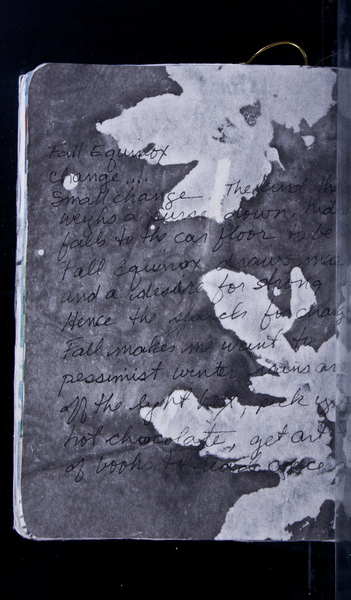 Fall Equinox
Change....
Small change. The kind tha
weighs a purse down,
falls to the car floor to be
Fall Equinox draws me
and a desire for strong
Hence the search for chang
Fall makes me want to
pessimist winter
off the light
hot chocolate, get art
of books to once